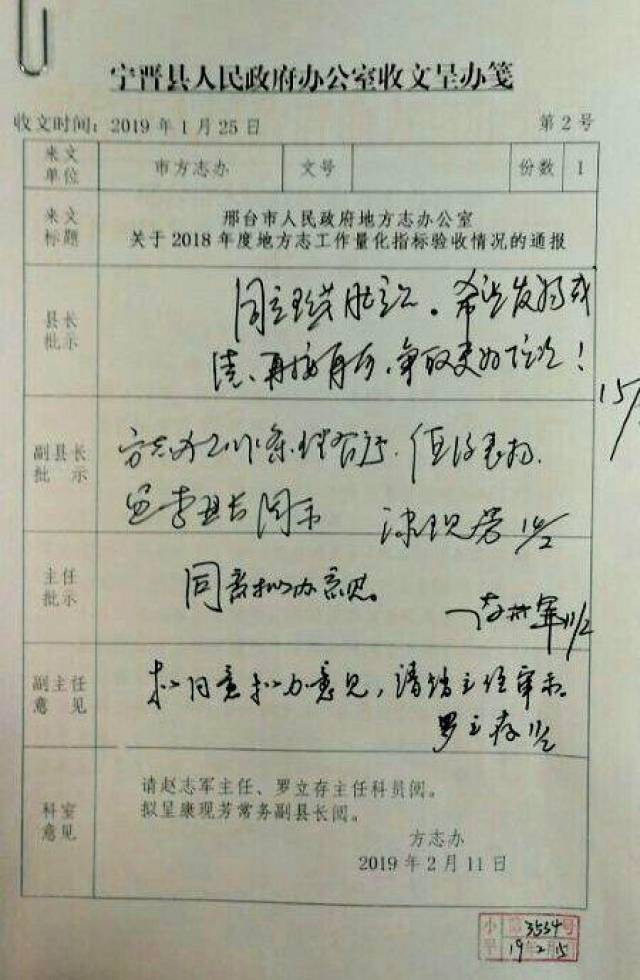 宁晋县人民政府办公室收文呈办笺
收文时间：2019年1月25日 第2号
来文单位 市方志办 文号 份数 1
来文标题 邢台市人民政府地方志办公室
关于2018年度地方志工作量化指标验收情况的通报
县长批示 希望发扬成
绩、再接再厉，争取更好位次！
15/
副县长批示 方志办工作 值得表扬，
呈李县长阅示 康现芳 14/2
主任批示 同意拟办意见。
赵志军 11/2
副主任意见 拟同意拟办意见，请赵主任审示。
罗立存 11/2
科室意见 请赵志军主任、罗立存主任科员阅。
拟呈康现芳常务副县长阅。
方志办
2019年2月11日
3554号
19年2月15